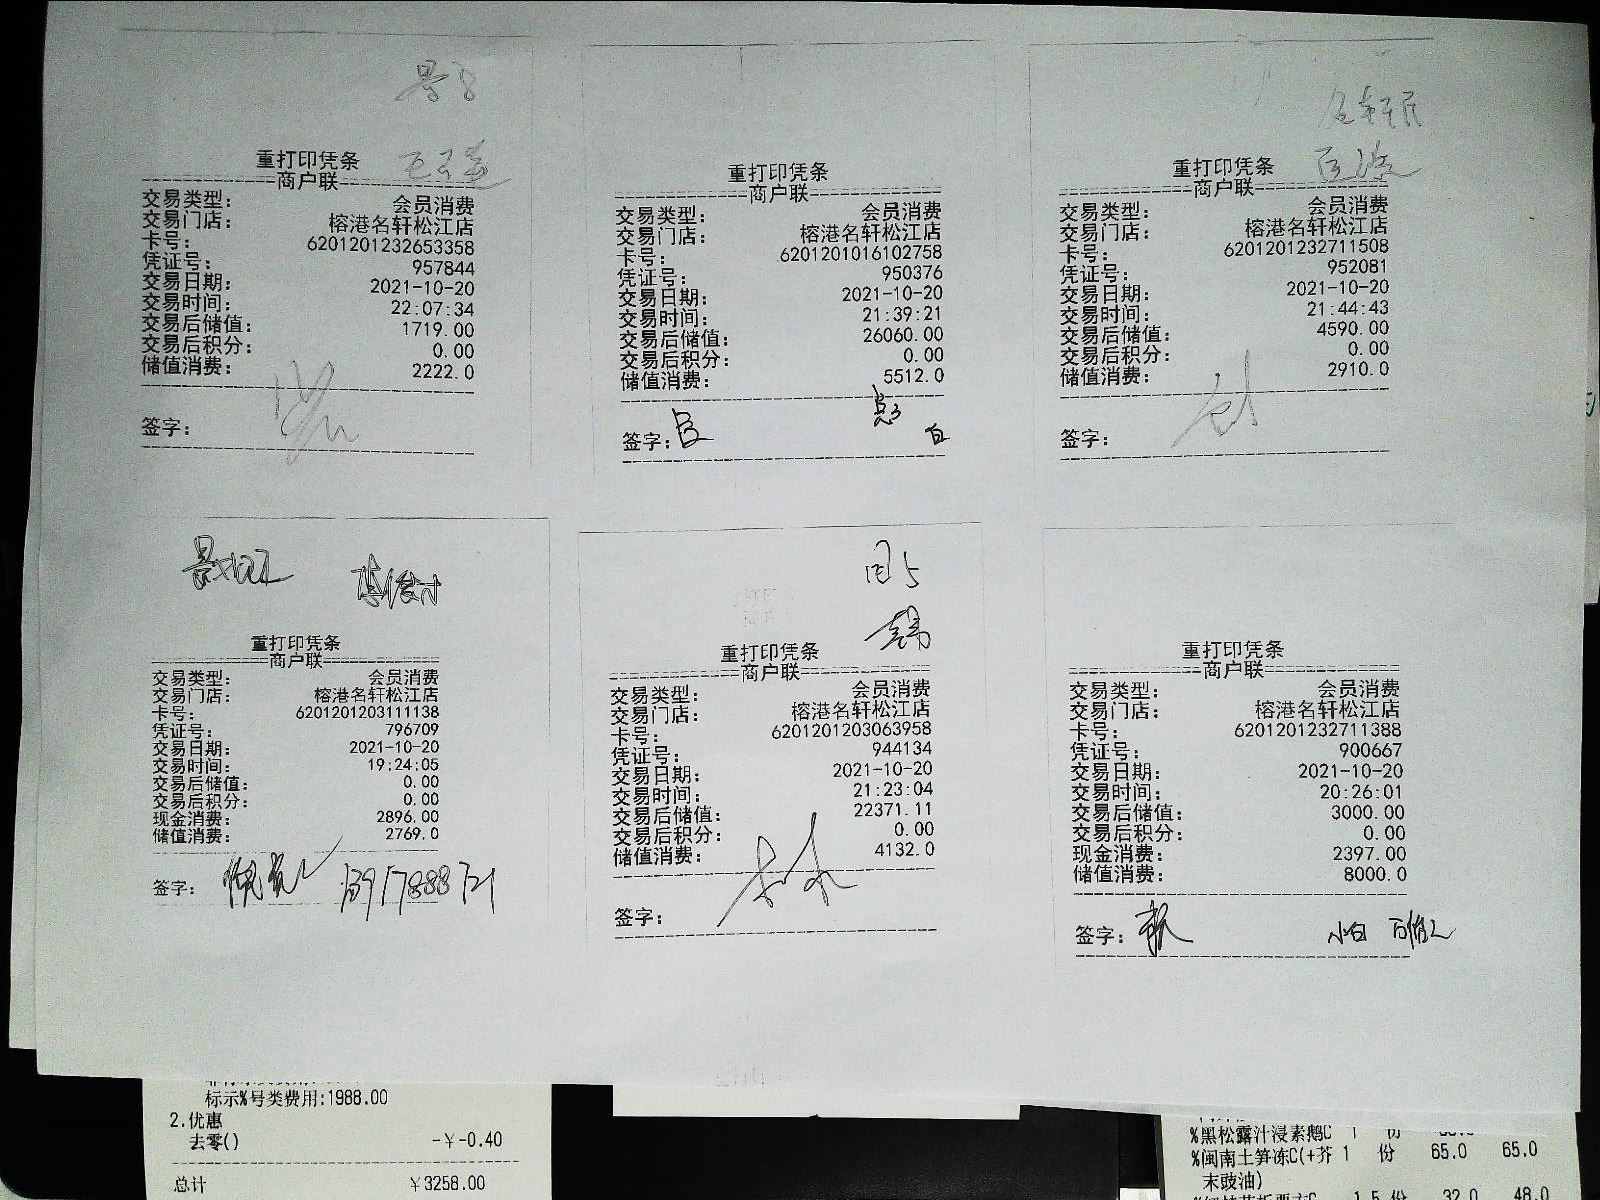 重打印凭条
商户联
交易类型： 会员消费
交易门店： 榕港名轩松江店
卡号： 6201201232653358
凭证号： 957844
交易日期： 2021-10-20
交易时间： 22:07:34
交易后储值： 1719.00
交易后积分： 0.00
储值消费： 2222.0
签字：
重打印凭条
商户联
交易类型： 会员消费
交易门店： 榕港名轩松江店
卡号： 6201201016102758
凭证号： 950376
交易日期： 2021-10-20
交易时间： 21:39:21
交易后储值： 26060.00
交易后积分： 0.00
储值消费： 5512.0
签字：
重打印凭条
商户联
交易类型： 会员消费
交易门店： 榕港名轩松江店
卡号： 6201201232711508
凭证号： 952081
交易日期： 2021-10-20
交易时间： 21:44:43
交易后储值： 4590.00
交易后积分： 0.00
储值消费： 2910.0
签字：
重打印凭条
商户联
交易类型： 会员消费
交易门店： 榕港名轩松江店
卡号： 6201201203111138
凭证号： 796709
交易日期： 2021-10-20
交易时间： 19:24:05
交易后储值： 0.00
交易后积分： 0.00
现金消费： 2896.00
储值消费： 2769.0
签字：
重打印凭条
商户联
交易类型： 会员消费
交易门店： 榕港名轩松江店
卡号： 6201201203063958
凭证号： 944134
交易日期： 2021-10-20
交易时间： 21:23:04
交易后储值： 22371.11
交易后积分： 0.00
储值消费： 4132.0
签字：
重打印凭条
商户联
交易类型： 会员消费
交易门店： 榕港名轩松江店
卡号： 6201201232711388
凭证号： 900667
交易日期： 2021-10-20
交易时间： 20:26:01
交易后储值： 3000.00
交易后积分： 0.00
现金消费： 2397.00
储值消费： 8000.0
签字： 小白
标示%号类费用:1988.00
2.优惠
去零() -￥-0.40
总计 ￥3258.00
%黑松露汁浸素鹅C 1 份
%闽南土笋冻C(+芥 1 份 65.0 65.0
末豉油)
1.5 份 32.0 48.0